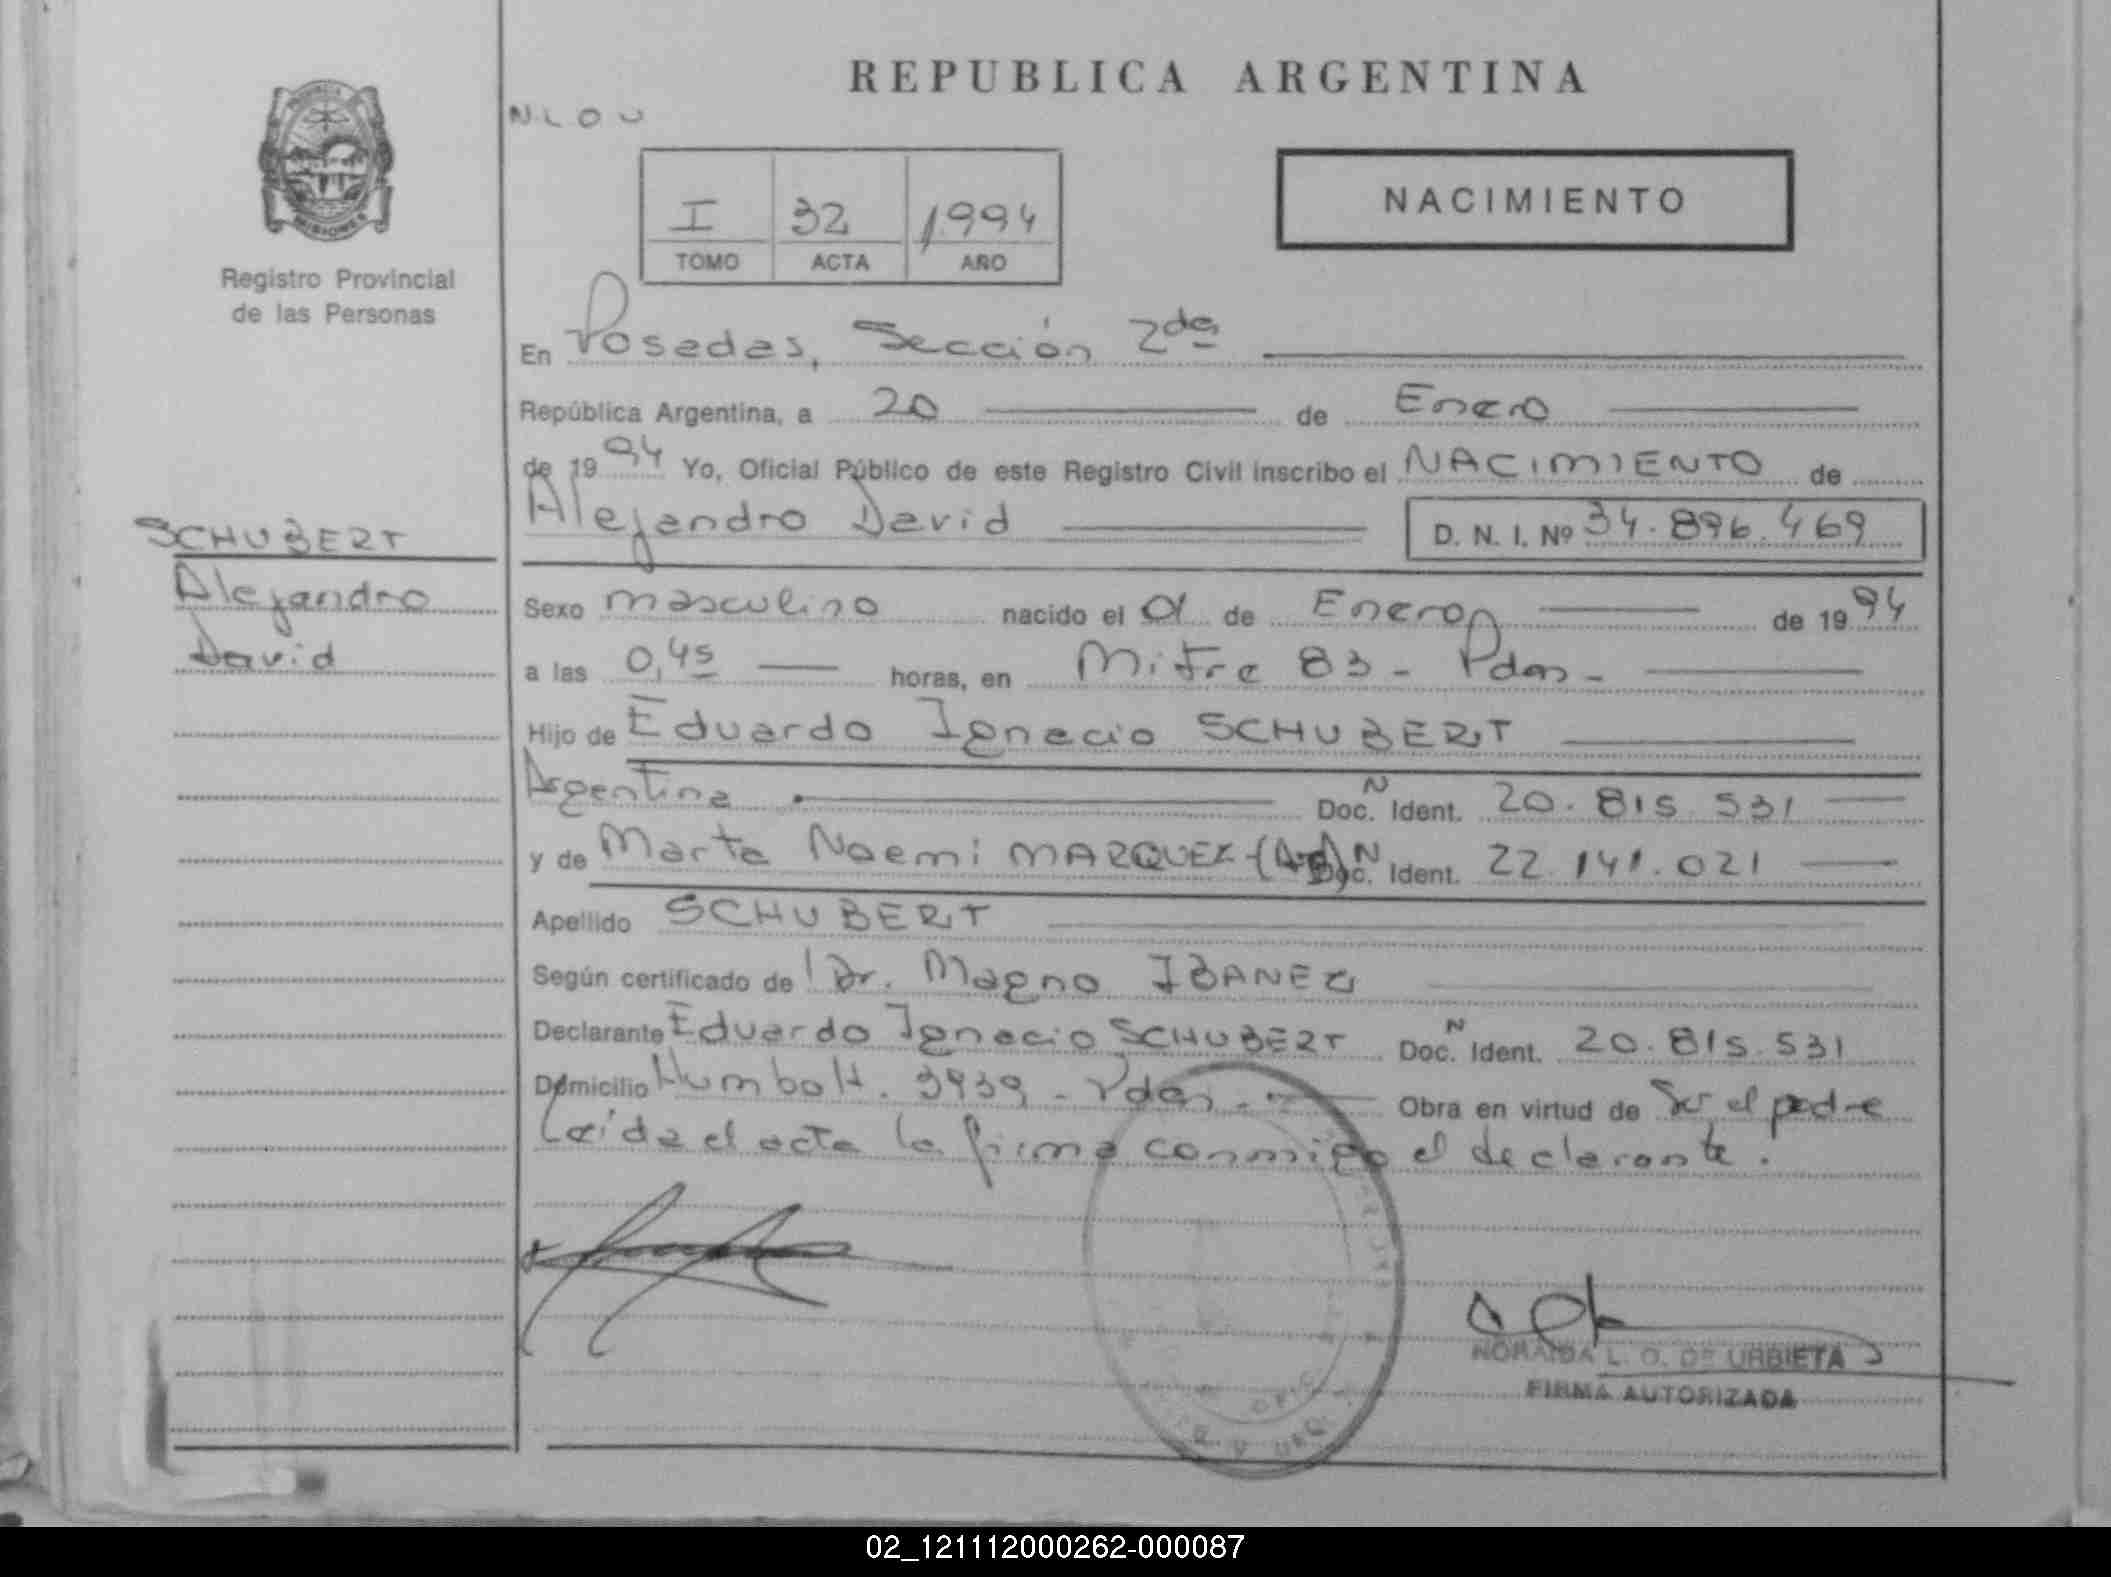 REPUBLICA ARGENTINA
N.L.O.U
PROVINCIA
MISIONES
Registro Provincial
de las Personas
I 32 1.994
TOMO ACTA AÑO
NACIMIENTO
En Posadas, Sección 2da
República Argentina, a 20 de Enero
de 1994 Yo, Oficial Público de este Registro Civil inscribo el NACIMIENTO de
Alejandro David D. N. I. Nº 34.896.469
SCHUBERT
Alejandro
David
Sexo masculino nacido el 01 de Enero de 1994
a las 0,45 horas, en Mitre 83 - Pdas -
Hijo de Eduardo Ignacio SCHUBERT
Argentina Doc. N Ident. 20.815.531
y de Marta Noemi MARQUEZ - (Arg) Doc. N Ident. 22.141.021
Apellido SCHUBERT
Según certificado de Dr. Magno IBANEZ
Declarante Eduardo Ignacio SCHUBERT Doc. N Ident. 20.815.531
Domicilio Humbolt. 3939 - Pdas - Obra en virtud de Ser el padre
Leída el acta la firma conmigo el declarante.
NORAIDA L. O. DE URBIETA
FIRMA AUTORIZADA
02_121112000262-000087